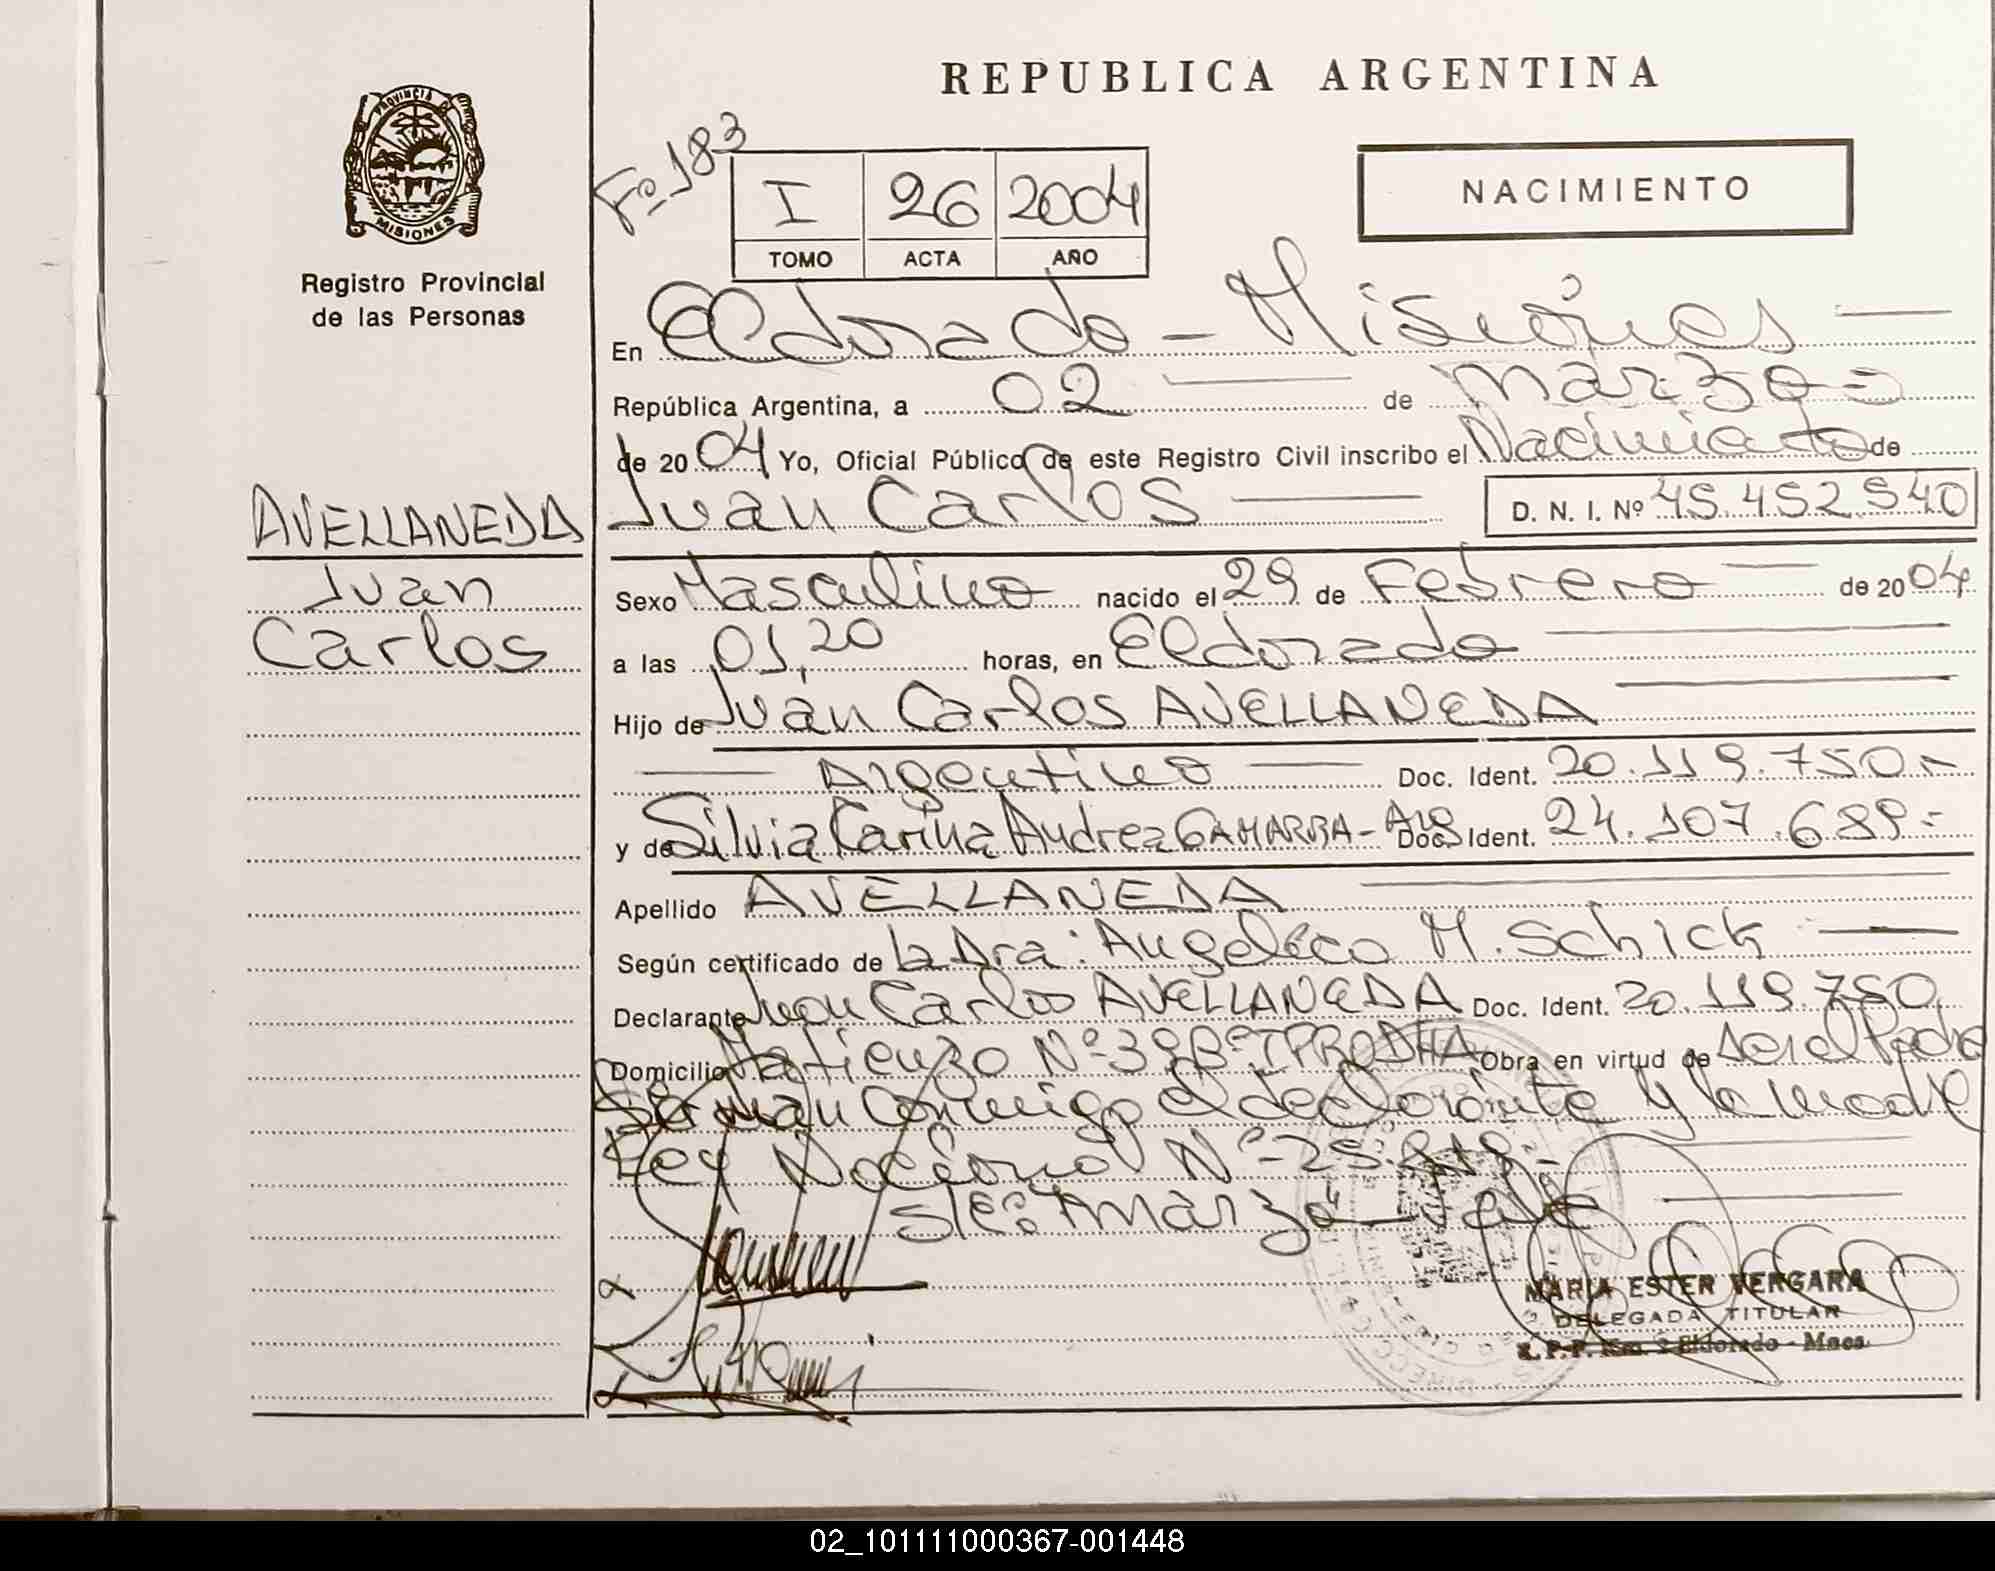 REPUBLICA ARGENTINA
PROVINCIA DE
MISIONES
Registro Provincial
de las Personas
Fº 183
I 26 2004
TOMO ACTA AÑO
NACIMIENTO
En Eldorado - Misiones
República Argentina, a 02 de marzo =
de 2004 Yo, Oficial Público de este Registro Civil inscribo el Nacimiento de
Juan Carlos D. N. I. Nº 45.452.540
AVELLANEDA
Juan
Carlos
Sexo Masculino nacido el 29 de Febrero de 2004
a las 01,20 horas, en Eldorado
Hijo de Juan Carlos AVELLANEDA
Argentino Doc. Ident. 20.119.750.-
y de Silvia Carina Andrea GAMARRA - Arg Doc. Ident. 24.107.689.-
Apellido AVELLANEDA
Según certificado de la Dra: Angelica M. Schick
Declarante Juan Carlos AVELLANEDA Doc. Ident. 20.119.750
Domicilio Matienzo Nº 39 Bº IPRODHA Obra en virtud de ser el Padre
Firman conmigo el declarante y la madre
Ley Nacional Nº 25.819.-
S/Eº Marzo - Vale
MARIA ESTER VERGARA
DELEGADA TITULAR
R. P. P. Km. 2 Eldorado - Mnes.
02_101111000367-001448